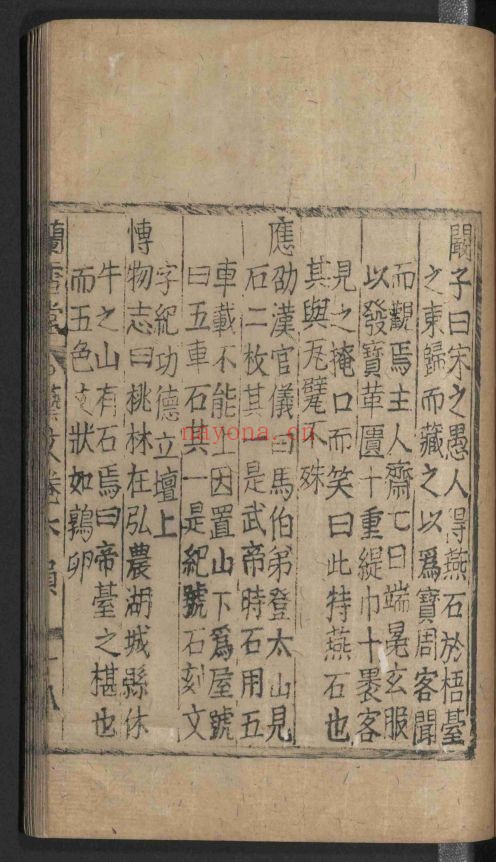 闞子曰宋之愚人得燕石於梧臺
之東歸而藏之以爲寶周客聞
而觀焉主人齋七日端冕玄服
以發寶革匱十重緹巾十褁客
見之掩口而笑曰此特燕石也
其與瓦甓不殊
應劭漢官儀曰馬伯弟登太山見
石二枚其一是武帝時石用五
車載不能上因置山下爲屋號
曰五車石其一是紀號石刻文
字紀功德立壇上
博物志曰桃林在弘農湖城縣休
牛之山有石焉曰帝臺之棋也
而五色文狀如鶉卵
蘭雪堂 藝文卷六
nayona.cn